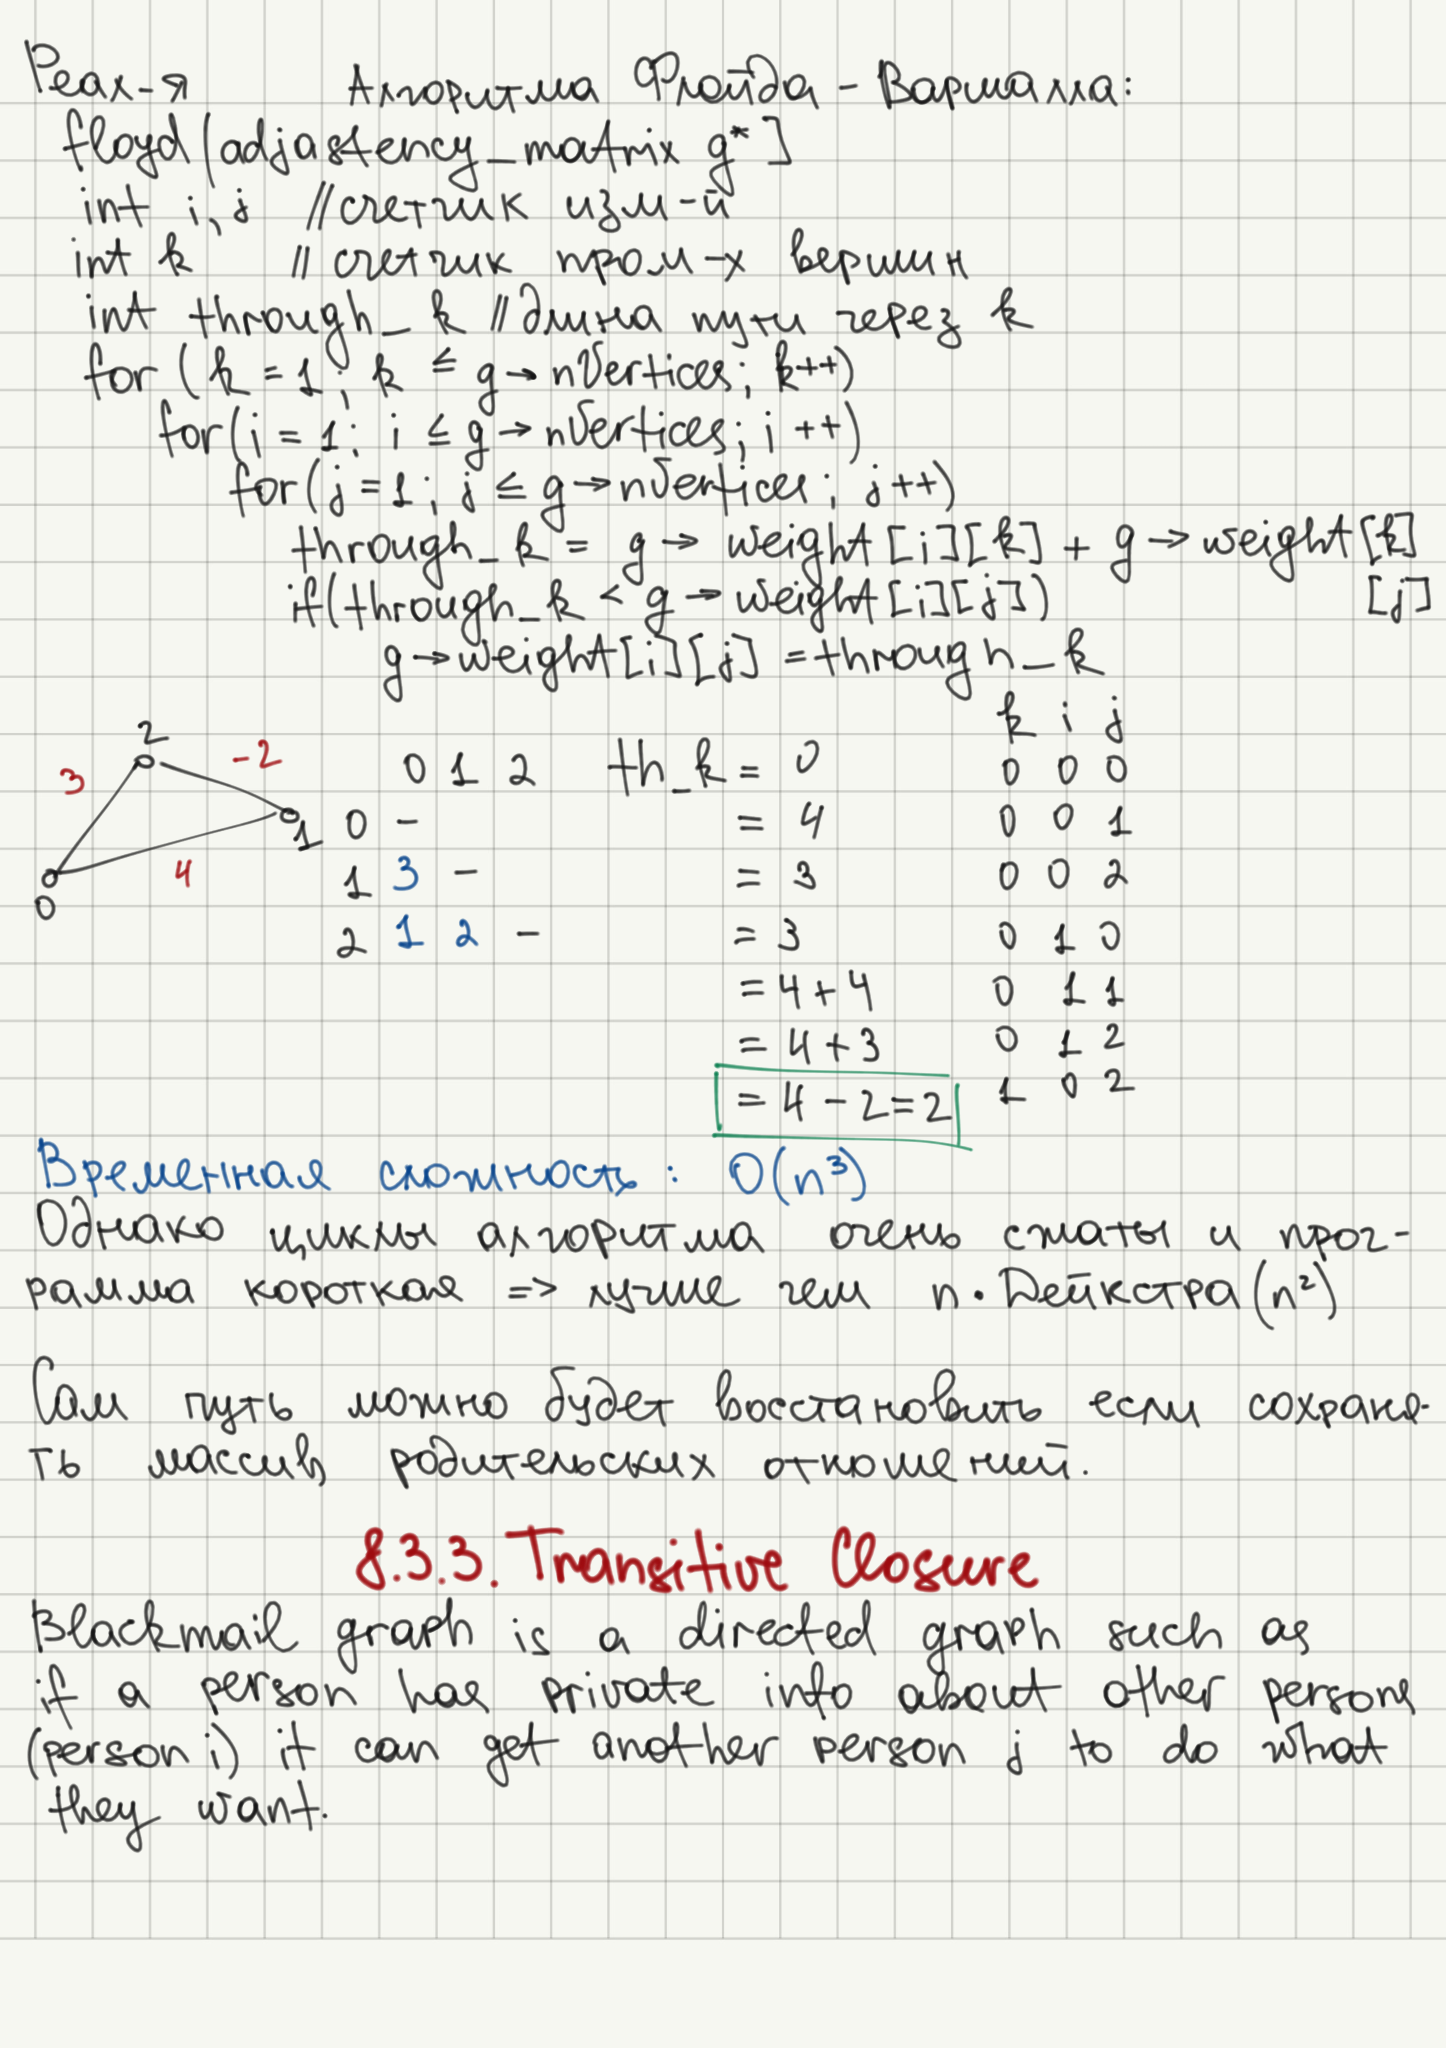 Реал-я Алгоритма Флойда - Варшалла:
floyd(adjastency_matrix g*]
int i, j //счетчик изм-й
int k // счетчик пром-х вершин
int through_k //длина пути через k
for (k = 1; k ≤ g → nVertices; k++)
for(i = 1; i ≤ g → nVertices; i ++)
for(j = 1; j ≤ g → nVertices; j++)
through_k = g → weight[i][k] + g → weight[k]
[j]
if(through_k < g → weight[i][j])
g → weight[i][j] = through_k
k i j
2 -2 0 1 2 th_k = 0 0 0 0
3 1 0 - = 4 0 0 1
4 1 3 - = 3 0 0 2
0 2 1 2 - = 3 0 1 0
= 4 + 4 0 1 1
= 4 + 3 0 1 2
= 4 - 2 = 2 1 0 2
Временная сложность: O(n³)
Однако циклы алгоритма очень сжаты и прог-
рамма короткая => лучше чем n · Дейкстра(n²)
Сам путь можно будет восстановить если сохраня-
ть массив родительских отношений.
8.3.3. Transitive Closure
Blackmail graph is a directed graph such as
if a person has private info about other persons
(person i) it can get another person j to do what
they want.